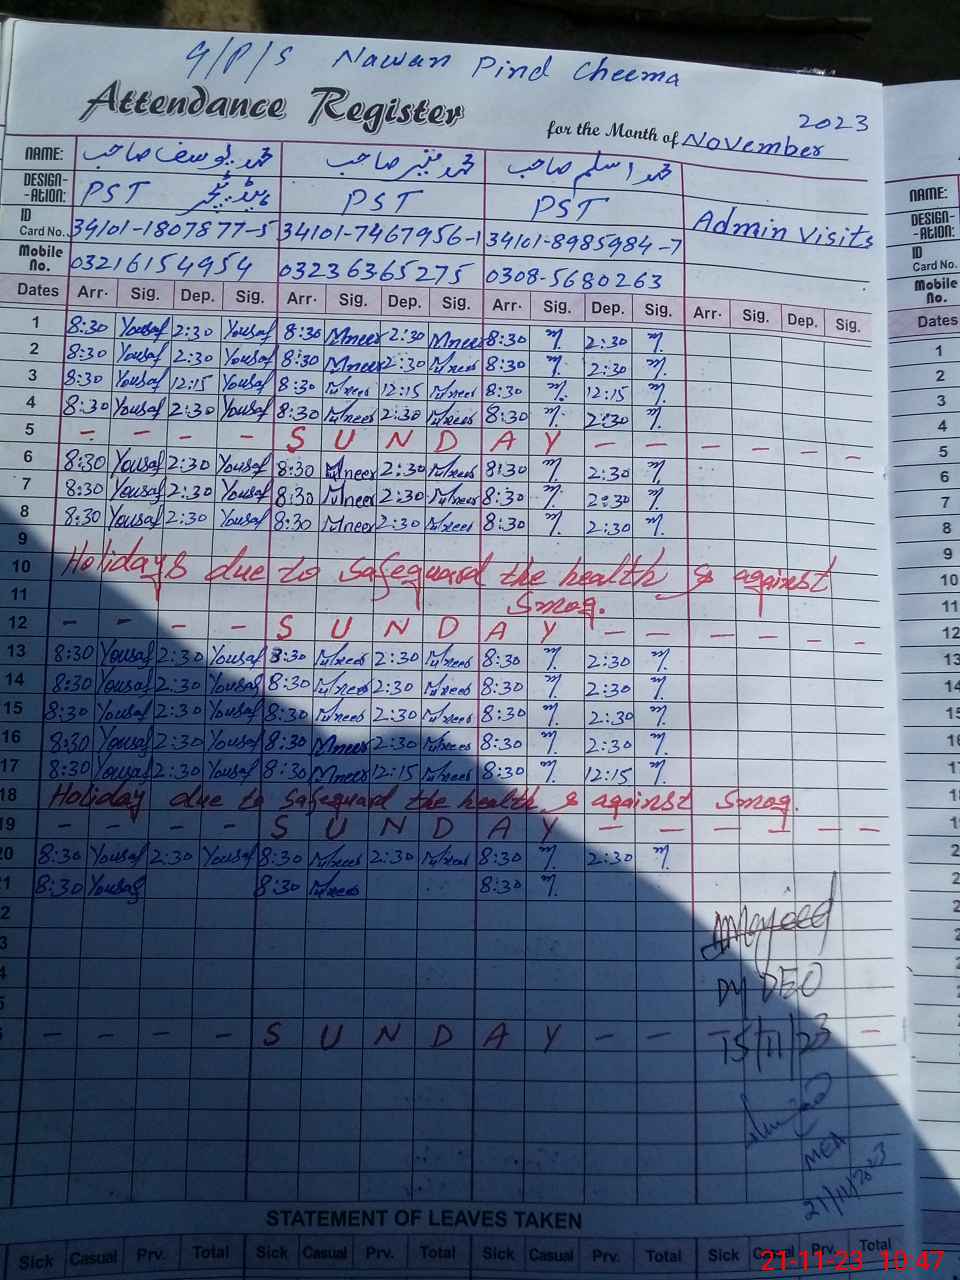 G/P/S Nawan Pind Cheema
Attendance Register for the Month of November 2023
NAME: محمد یوسف صاحب محمد منیر صاحب محمد اسلم صاحب
DESIGN-ATION: PST ہیڈ ٹیچر PST PST
Admin Visits
ID Card No. 34101-1807877-5 34101-7467956-1 34101-8985984-7
Mobile No. 03216154954 03236365275 0308-5680263
Dates Arr. Sig. Dep. Sig. Arr. Sig. Dep. Sig. Arr. Sig. Dep. Sig. Arr. Sig. Dep. Sig.
1 8:30 Yousaf 2:30 Yousaf 8:30 Mneer 2:30 Mneer 8:30 m. 2:30 m.
2 8:30 Yousaf 2:30 Yousaf 8:30 Mneer 2:30 Mneer 8:30 m. 2:30 m.
3 8:30 Yousaf 12:15 Yousaf 8:30 Mneer 12:15 Mneer 8:30 m. 12:15 m.
4 8:30 Yousaf 2:30 Yousaf 8:30 Mneer 2:30 Mneer 8:30 m. 2:30 m.
5 - - - - S U N D A Y - - - - - -
6 8:30 Yousaf 2:30 Yousaf 8:30 Mneer 2:30 Mneer 8:30 m. 2:30 m.
7 8:30 Yousaf 2:30 Yousaf 8:30 Mneer 2:30 Mneer 8:30 m. 2:30 m.
8 8:30 Yousaf 2:30 Yousaf 8:30 Mneer 2:30 Mneer 8:30 m. 2:30 m.
9
10 Holidays due to safeguard the health & against
11 Smog.
12 - - - - S U N D A Y - - - - - -
13 8:30 Yousaf 2:30 Yousaf 8:30 Mneer 2:30 Mneer 8:30 m. 2:30 m.
14 8:30 Yousaf 2:30 Yousaf 8:30 Mneer 2:30 Mneer 8:30 m. 2:30 m.
15 8:30 Yousaf 2:30 Yousaf 8:30 Mneer 2:30 Mneer 8:30 m. 2:30 m.
16 8:30 Yousaf 2:30 Yousaf 8:30 Mneer 2:30 Mneer 8:30 m. 2:30 m.
17 8:30 Yousaf 2:30 Yousaf 8:30 Mneer 12:15 Mneer 8:30 m. 12:15 m.
18 Holiday due to safeguard the health & against smog.
19 - - - - S U N D A Y - - - - - -
20 8:30 Yousaf 2:30 Yousaf 8:30 Mneer 2:30 Mneer 8:30 m. 2:30 m.
21 8:30 Yousaf 8:30 Mneer 8:30 m.
Majeed
Dy DEO
- - - - S U N D A Y - - - -
15/11/23
MEA
21/11/2023
STATEMENT OF LEAVES TAKEN
Sick Casual Prv. Total Sick Casual Prv. Total Sick Casual Prv. Total Sick Casual Prv. Total
21-11-23 10:47
NAME:
DESIGN-ATION:
ID Card No.
Mobile No.
Dates
1
2
3
4
5
6
7
8
9
10
11
12
13
14
15
16
17